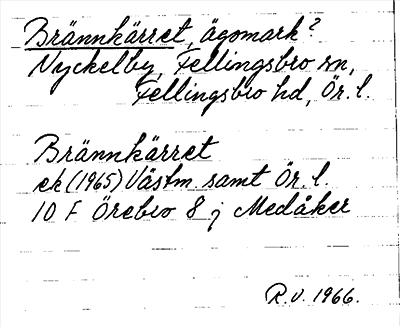 Brännkärret, ägomark?
Nyckelby, Fellingsbro sn,
Fellingsbro hd, Ör. l.
Brännkärret
ek (1965) Västm. samt Ör. l.
10 F Örebro 8 j Medåker
R.V. 1966.